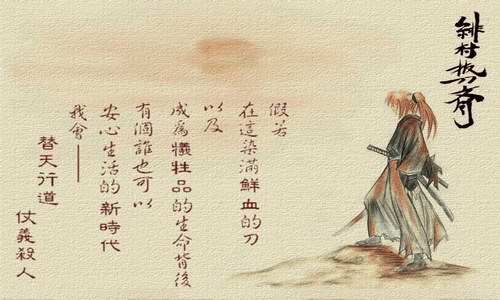 緋村拔刀斎
假若
在這染滿鮮血的刀
以及
成為犧牲品的生命背後
有個誰也可以
安心生活的新時代
我會──
替天行道
仗義殺人